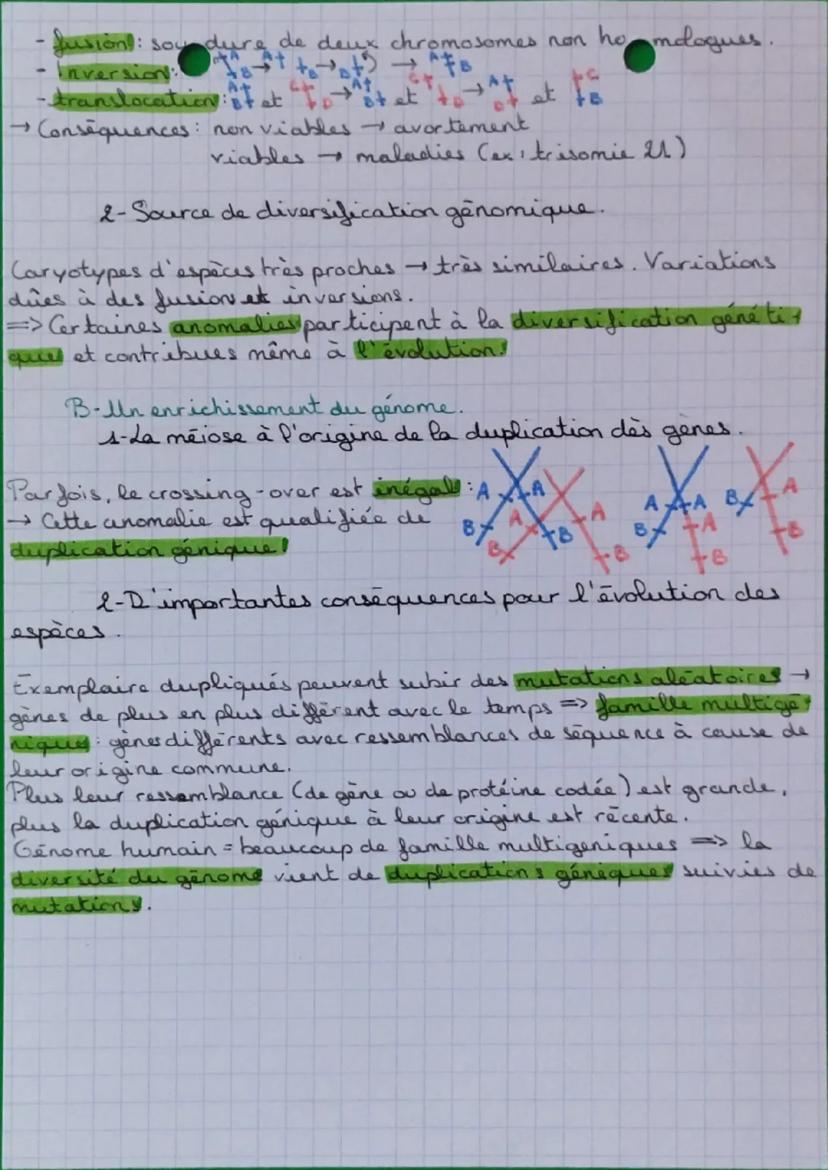 - fusion : soudure de deux chromosomes non homologues.
- inversion : A B → A B → B → A B
- translocation : A B et C D → A B et C D → A D et C B
→ Conséquences : non viables → avortement
viables → maladies (ex : trisomie 21)
2-Source de diversification génomique.
Caryotypes d'espèces très proches → très similaires. Variations
dûes à des fusion et inversions.
=> Certaines anomalies participent à la diversification généti-
que et contribues même à l'évolution.
B-Un enrichissement du génome.
1-La méiose à l'origine de la duplication dès gènes.
Parfois, le crossing-over est inégal : A A B B A A B B A A B A B B A B
→ Cette anomalie est qualifiée de
duplication génique.
2-D'importantes conséquences pour l'évolution des
espèces.
Exemplaire dupliqués peuvent subir des mutations aléatoires →
gènes de plus en plus différent avec le temps => famille multigé-
niques : gènes différents avec ressemblances de séquence à cause de
leur origine commune.
Plus leur ressemblance (de gène ou de protéine codée) est grande,
plus la duplication génique à leur origine est récente.
Génome humain = beaucoup de famille multigeniques => la
diversité du génome vient de duplications géniques suivies de
mutations.